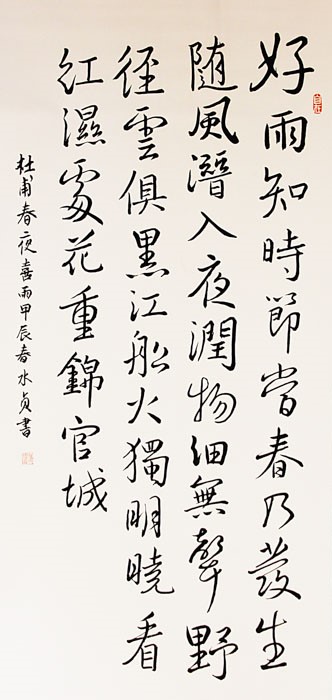 好雨知時節當春乃發生
隨風潛入夜潤物細無聲野
徑雲俱黑江船火獨明曉看
紅濕處花重錦官城
杜甫春夜喜雨甲辰春水貞書